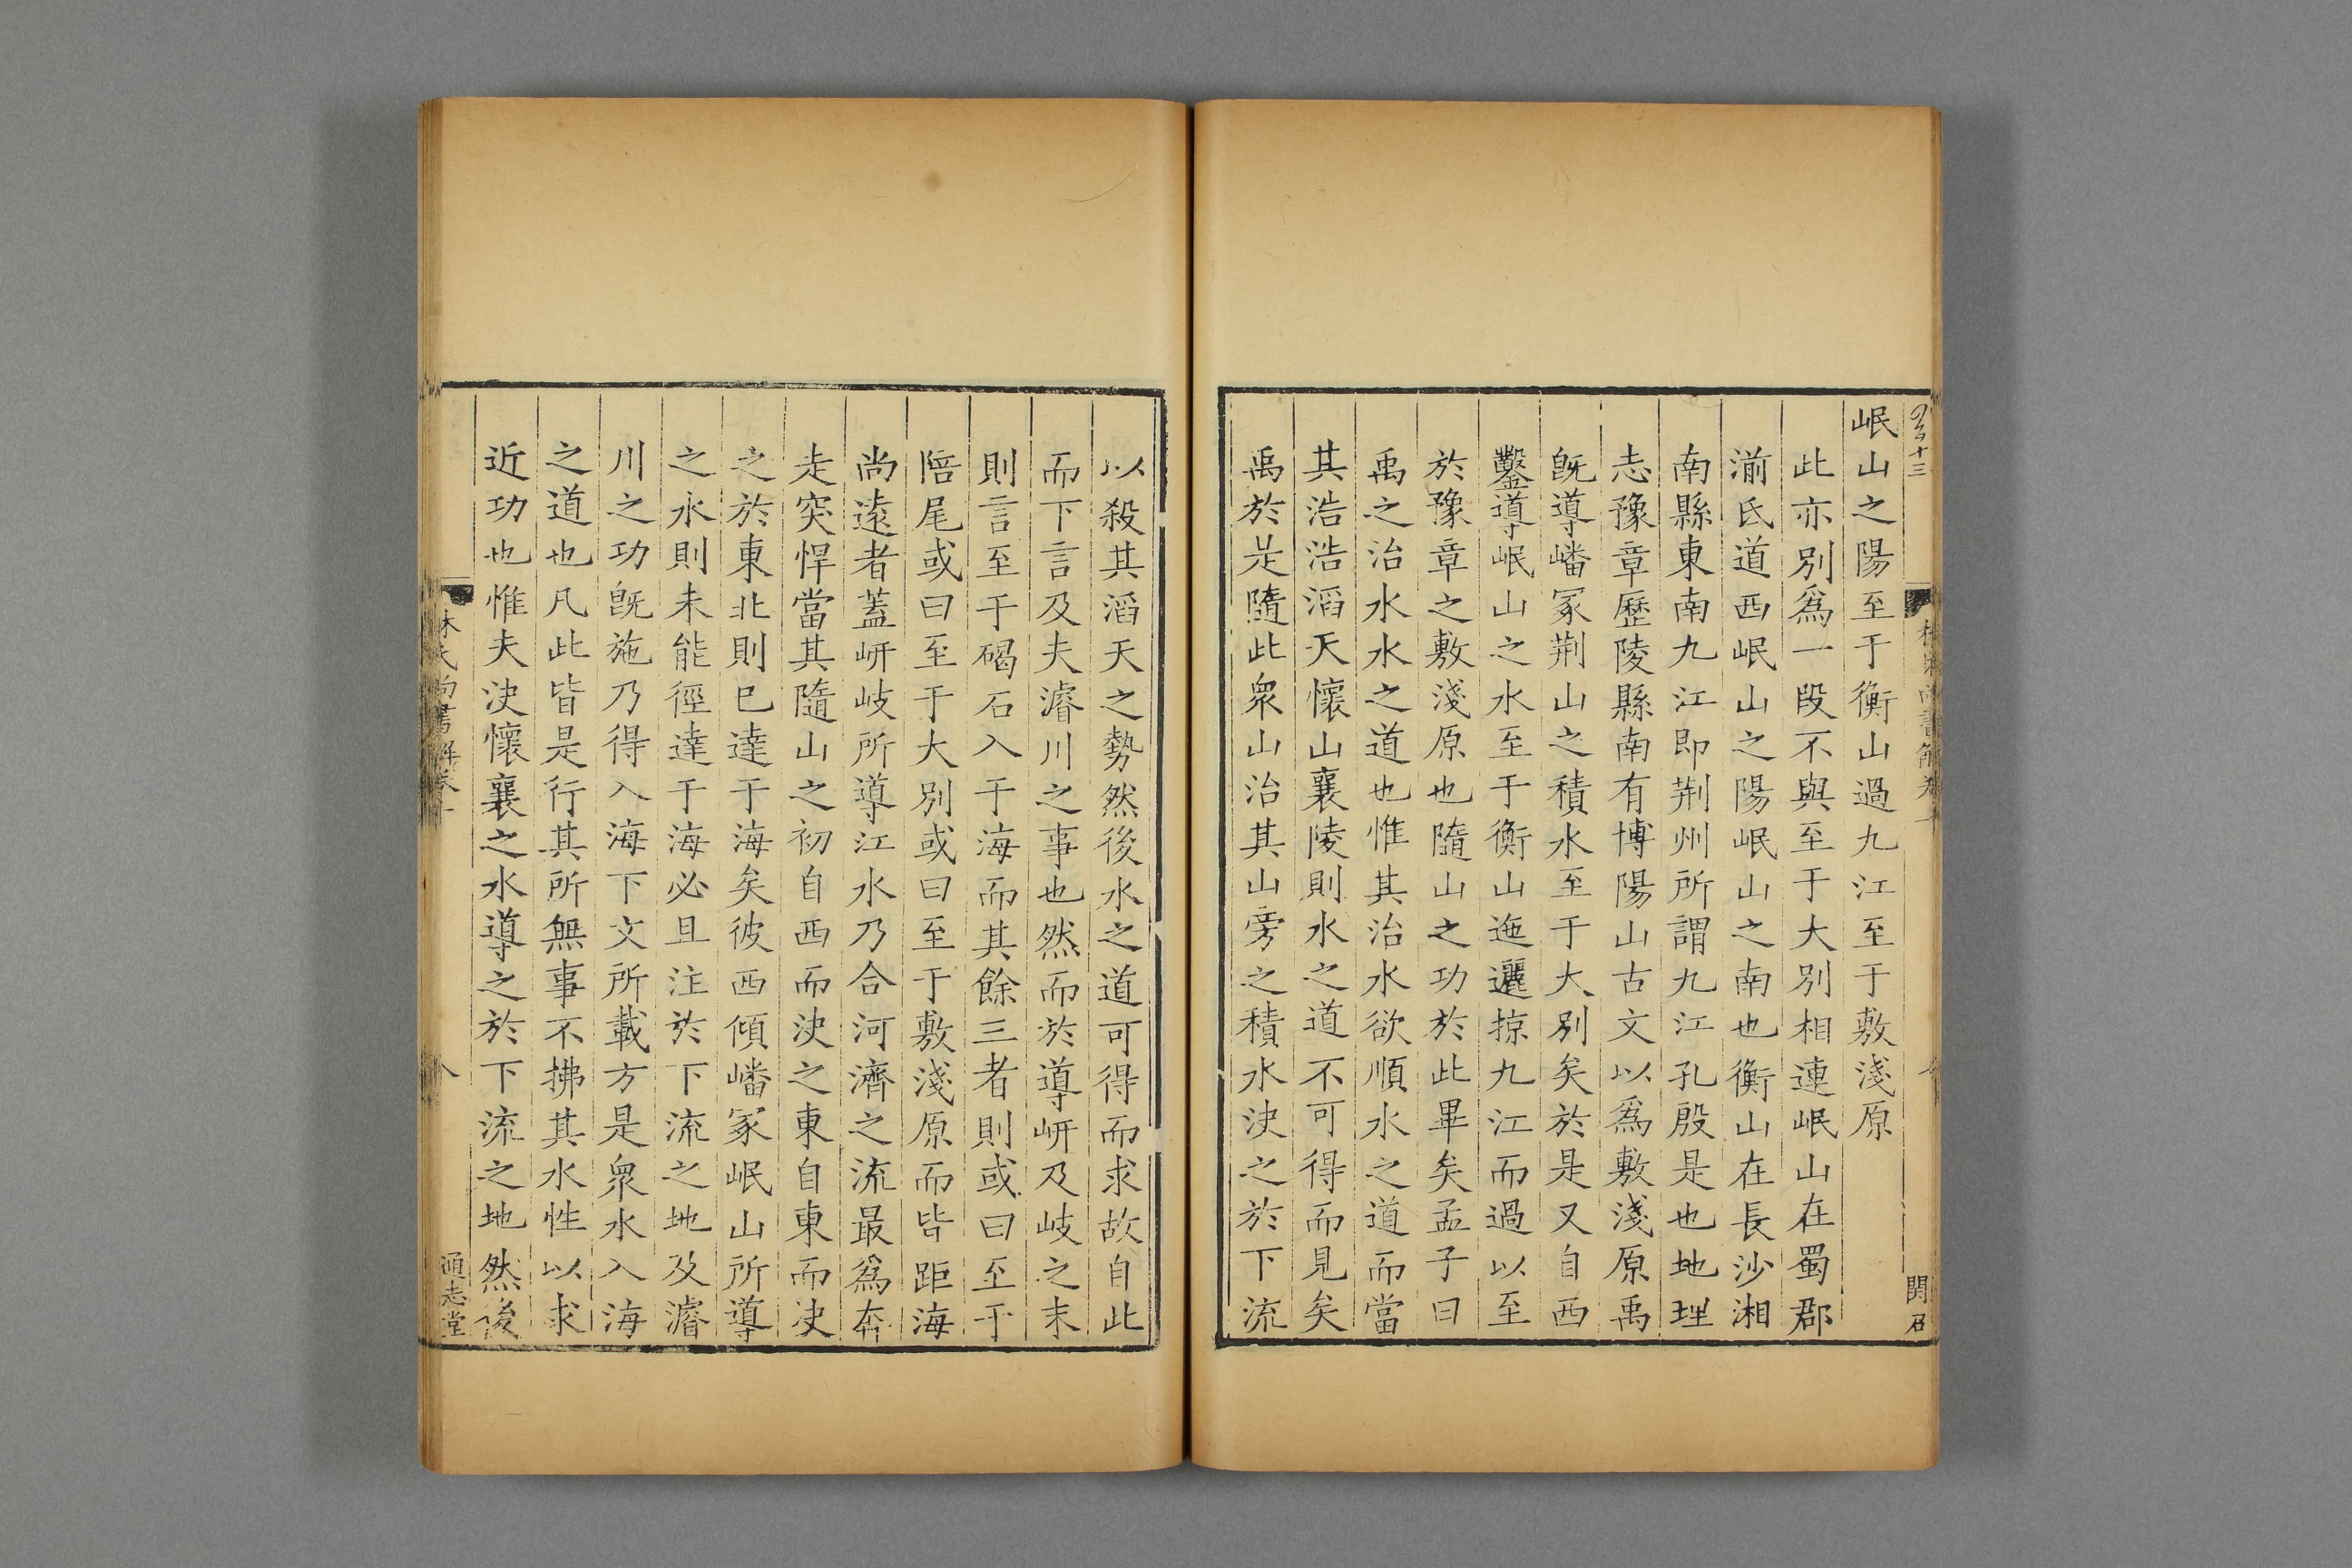 岷山之陽至于衡山過九江至于敷淺原
此亦別爲一段不與至于大別相連岷山在蜀郡
湔氐道西岷山之陽岷山之南也衡山在長沙湘
南縣東南九江即荆州所謂九江孔殷是也地理
志豫章歷陵縣南有博陽山古文以爲敷淺原禹
旣導嶓冢荆山之積水至于大別矣於是又自西
鑿導岷山之水至于衡山迤邐掠九江而過以至
於豫章之敷淺原也隨山之功於此畢矣孟子曰
禹之治水水之道也惟其治水欲順水之道而當
其浩浩滔天懷山襄陵則水之道不可得而見矣
禹於是隨此衆山治其山旁之積水決之於下流
以殺其滔天之勢然後水之道可得而求故自此
而下言及夫濬川之事也然而於導岍及岐之末
則言至于碣石入于海而其餘三者則或曰至于
陪尾或曰至于大別或曰至于敷淺原而皆距海
尚遠者蓋岍岐所導江水乃合河濟之流最爲奔
走突悍當其隨山之初自西而決之東自東而決
之於東北則已達于海矣彼西傾嶓冢岷山所導
之水則未能徑達于海必且注於下流之地及濬
川之功旣施乃得入海下文所載方是衆水入海
之道也凡此皆是行其所無事不拂其水性以求
近功也惟夫決懷襄之水導之於下流之地然後
林氏尚書解卷十
八
通志堂